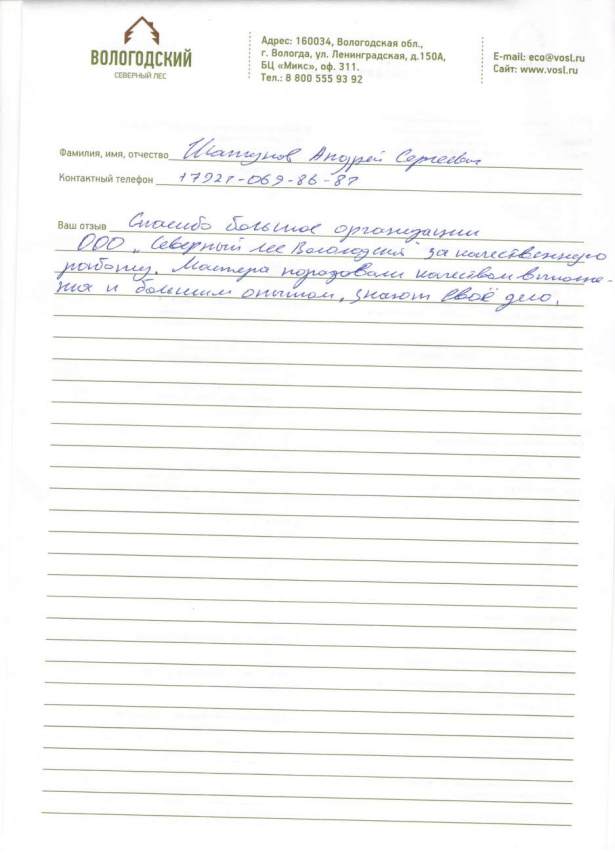 ВОЛОГОДСКИЙ
СЕВЕРНЫЙ ЛЕС
Адрес: 160034, Вологодская обл.,
г. Вологда, ул. Ленинградская, д.150А,
БЦ «Микс», оф. 311.
Тел.: 8 800 555 93 92
E-mail: eco@vosl.ru
Сайт: www.vosl.ru
Фамилия, имя, отчество Андрей Сергеевич
Контактный телефон +7921-069-86-87
Ваш отзыв Спасибо большое организации
ООО „Северный лес Вологодский" за качественную
работу. Мастера порадовали качеством выполне-
ния и большим опытом, знают своё дело.